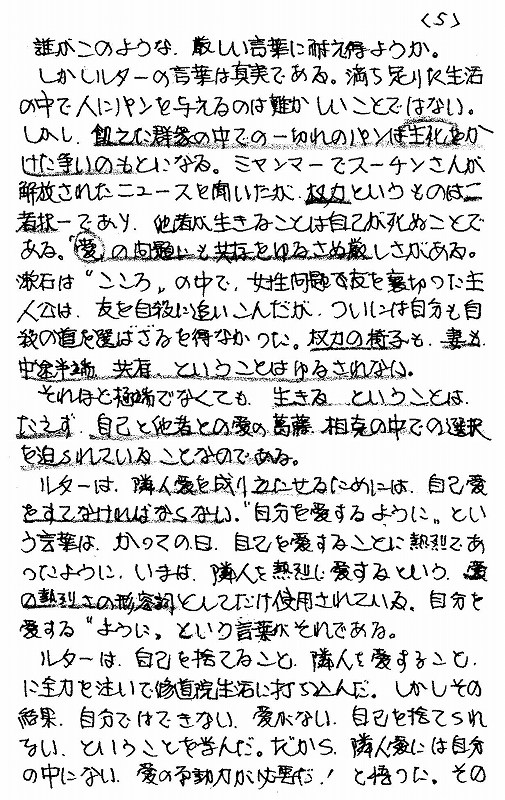 (5)
誰がこのような、厳しい言葉に耐え得ようか。
しかしルターの言葉は真実である。満ち足りた生活
の中で人にパンを与えるのは難かしいことではない。
しかし、飢えた群衆の中での一切れのパンは生死をか
けた争いのもとになる。ミャンマーでスーチンさんが
解放されたニュースを聞いたが、权力というものは二
者択一であり、他者が生きることは自己が死ぬことで
ある。「愛」の問題にも共存をゆるさぬ厳しさがある。
漱石は“こころ”の中で、女性問題で友を裏切った主
人公は、友を自殺に追いこんだが、ついには自分も自
殺の道を選ばざるを得なかった。权力の椅子も、妻も、
中途半端 共存、ということはゆるされない。
それほど極端でなくても、生きる ということは、
たえず、自己と他者との愛の葛藤、相克の中での選択
を迫られていることなのである。
ルターは、隣人愛を成り立たせるためには、自己愛
をすてなければならない。“自分を愛するように”とい
う言葉は、かつての日、自己を愛することに熱烈であ
ったように、いまは、隣人を熱烈に愛するという、愛
の熱烈さの形容詞としてだけ使用されている。自分を
愛する“ように”という言葉がそれである。
ルターは、自己を捨てること、隣人を愛すること、
に全力を注いで修道院生活に打ち込んだ。しかしその
結果、自分ではできない、愛がない、自己を捨てられ
ない、ということを学んだ。だから、隣人愛には自分
の中にない、愛の原動力が必要だ！と悟った。その